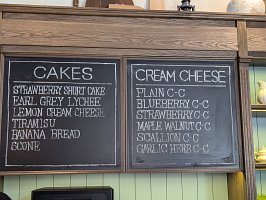 CAKES
STRAWBERRY SHORT CAKE
EARL GREY LYCHEE
LEMON CREAM CHEESE
TIRAMISU
BANANA BREAD
SCONE
CREAM CHEESE
PLAIN C-C
BLUEBERRY C-C
STRAWBERRY C-C
MAPLE WALNUT C-C
SCALLION C-C
GARLIC HERB C-C